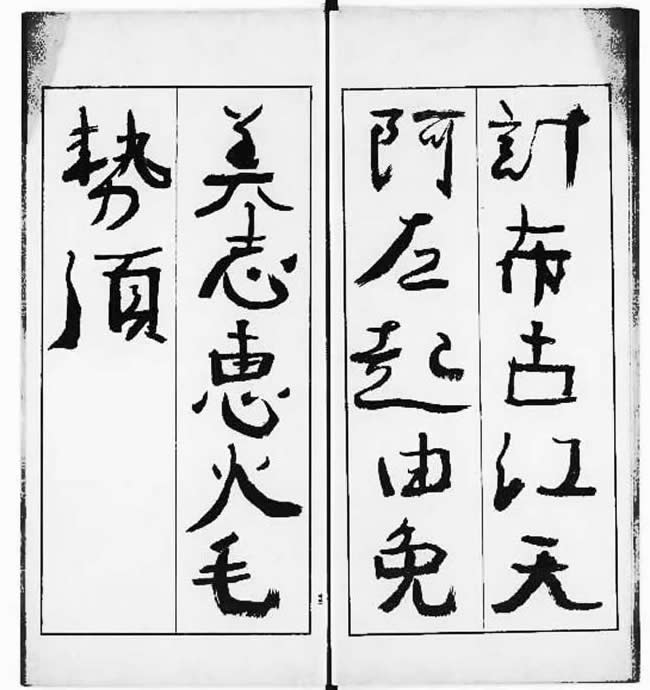 計布古江天
阿左起由免
美志恵火毛
勢須